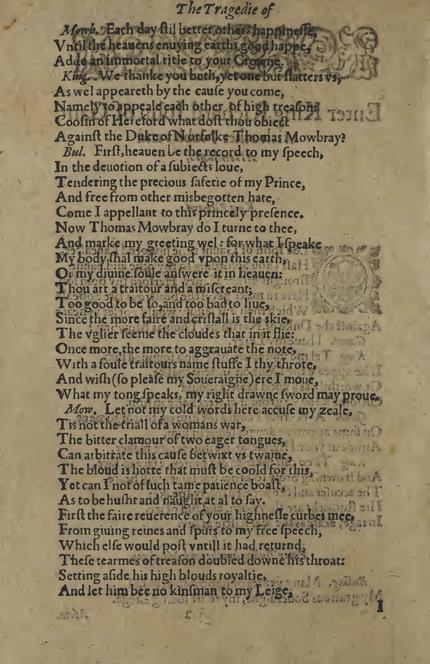 The Tragedie of
Mowb. Each day ſtil better others happineſſe,
Vntil the heauens enuying earths good happe,
Adde an immortal title to your Crowne.
King. We thanke you both, yet one but flatters vs,
As wel appeareth by the cauſe you come,
Namely to appeale each other of high treaſon:
Cooſin of Hereford what doſt thou obiect
Againſt the Duke of Norfolke Thomas Mowbray?
Bul. Firſt, heauen be the record to my ſpeech,
In the deuotion of a ſubiects loue,
Tendering the precious ſafetie of my Prince,
And free from other misbegotten hate,
Come I appellant to this princely preſence.
Now Thomas Mowbray do I turne to thee,
And marke my greeting wel: for what I ſpeake
My body ſhal make good vpon this earth,
Or my diuine ſoule anſwere it in heauen:
Thou art a traitour and a miſcreant;
Too good to be ſo, and too bad to liue,
Since the more faire and criſtall is the skie,
The vglier ſeeme the cloudes that in it flie:
Once more, the more to aggrauate the note,
With a foule traitours name ſtuffe I thy throte,
And wiſh (ſo pleaſe my Soueraigne) ere I moue,
What my tong ſpeaks, my right drawne ſword may proue.
Mow. Let not my cold words here accuſe my zeale,
Tis not the triall of a womans war,
The bitter clamour of two eager tongues,
Can arbitrate this cauſe betwixt vs twaine,
The bloud is hotte that muſt be coold for this,
Yet can I not of ſuch tame patience boaſt,
As to be huſht and naught at al to ſay.
Firſt the faire reuerence of your highneſſe curbes mee,
From giuing reines and ſpurs to my free ſpeech,
Which elſe would poſt vntill it had returnd,
Theſe tearmes of treaſon doubled downe his throat:
Setting aſide his high blouds royaltie,
And let him bee no kinſman to my Leige,
I